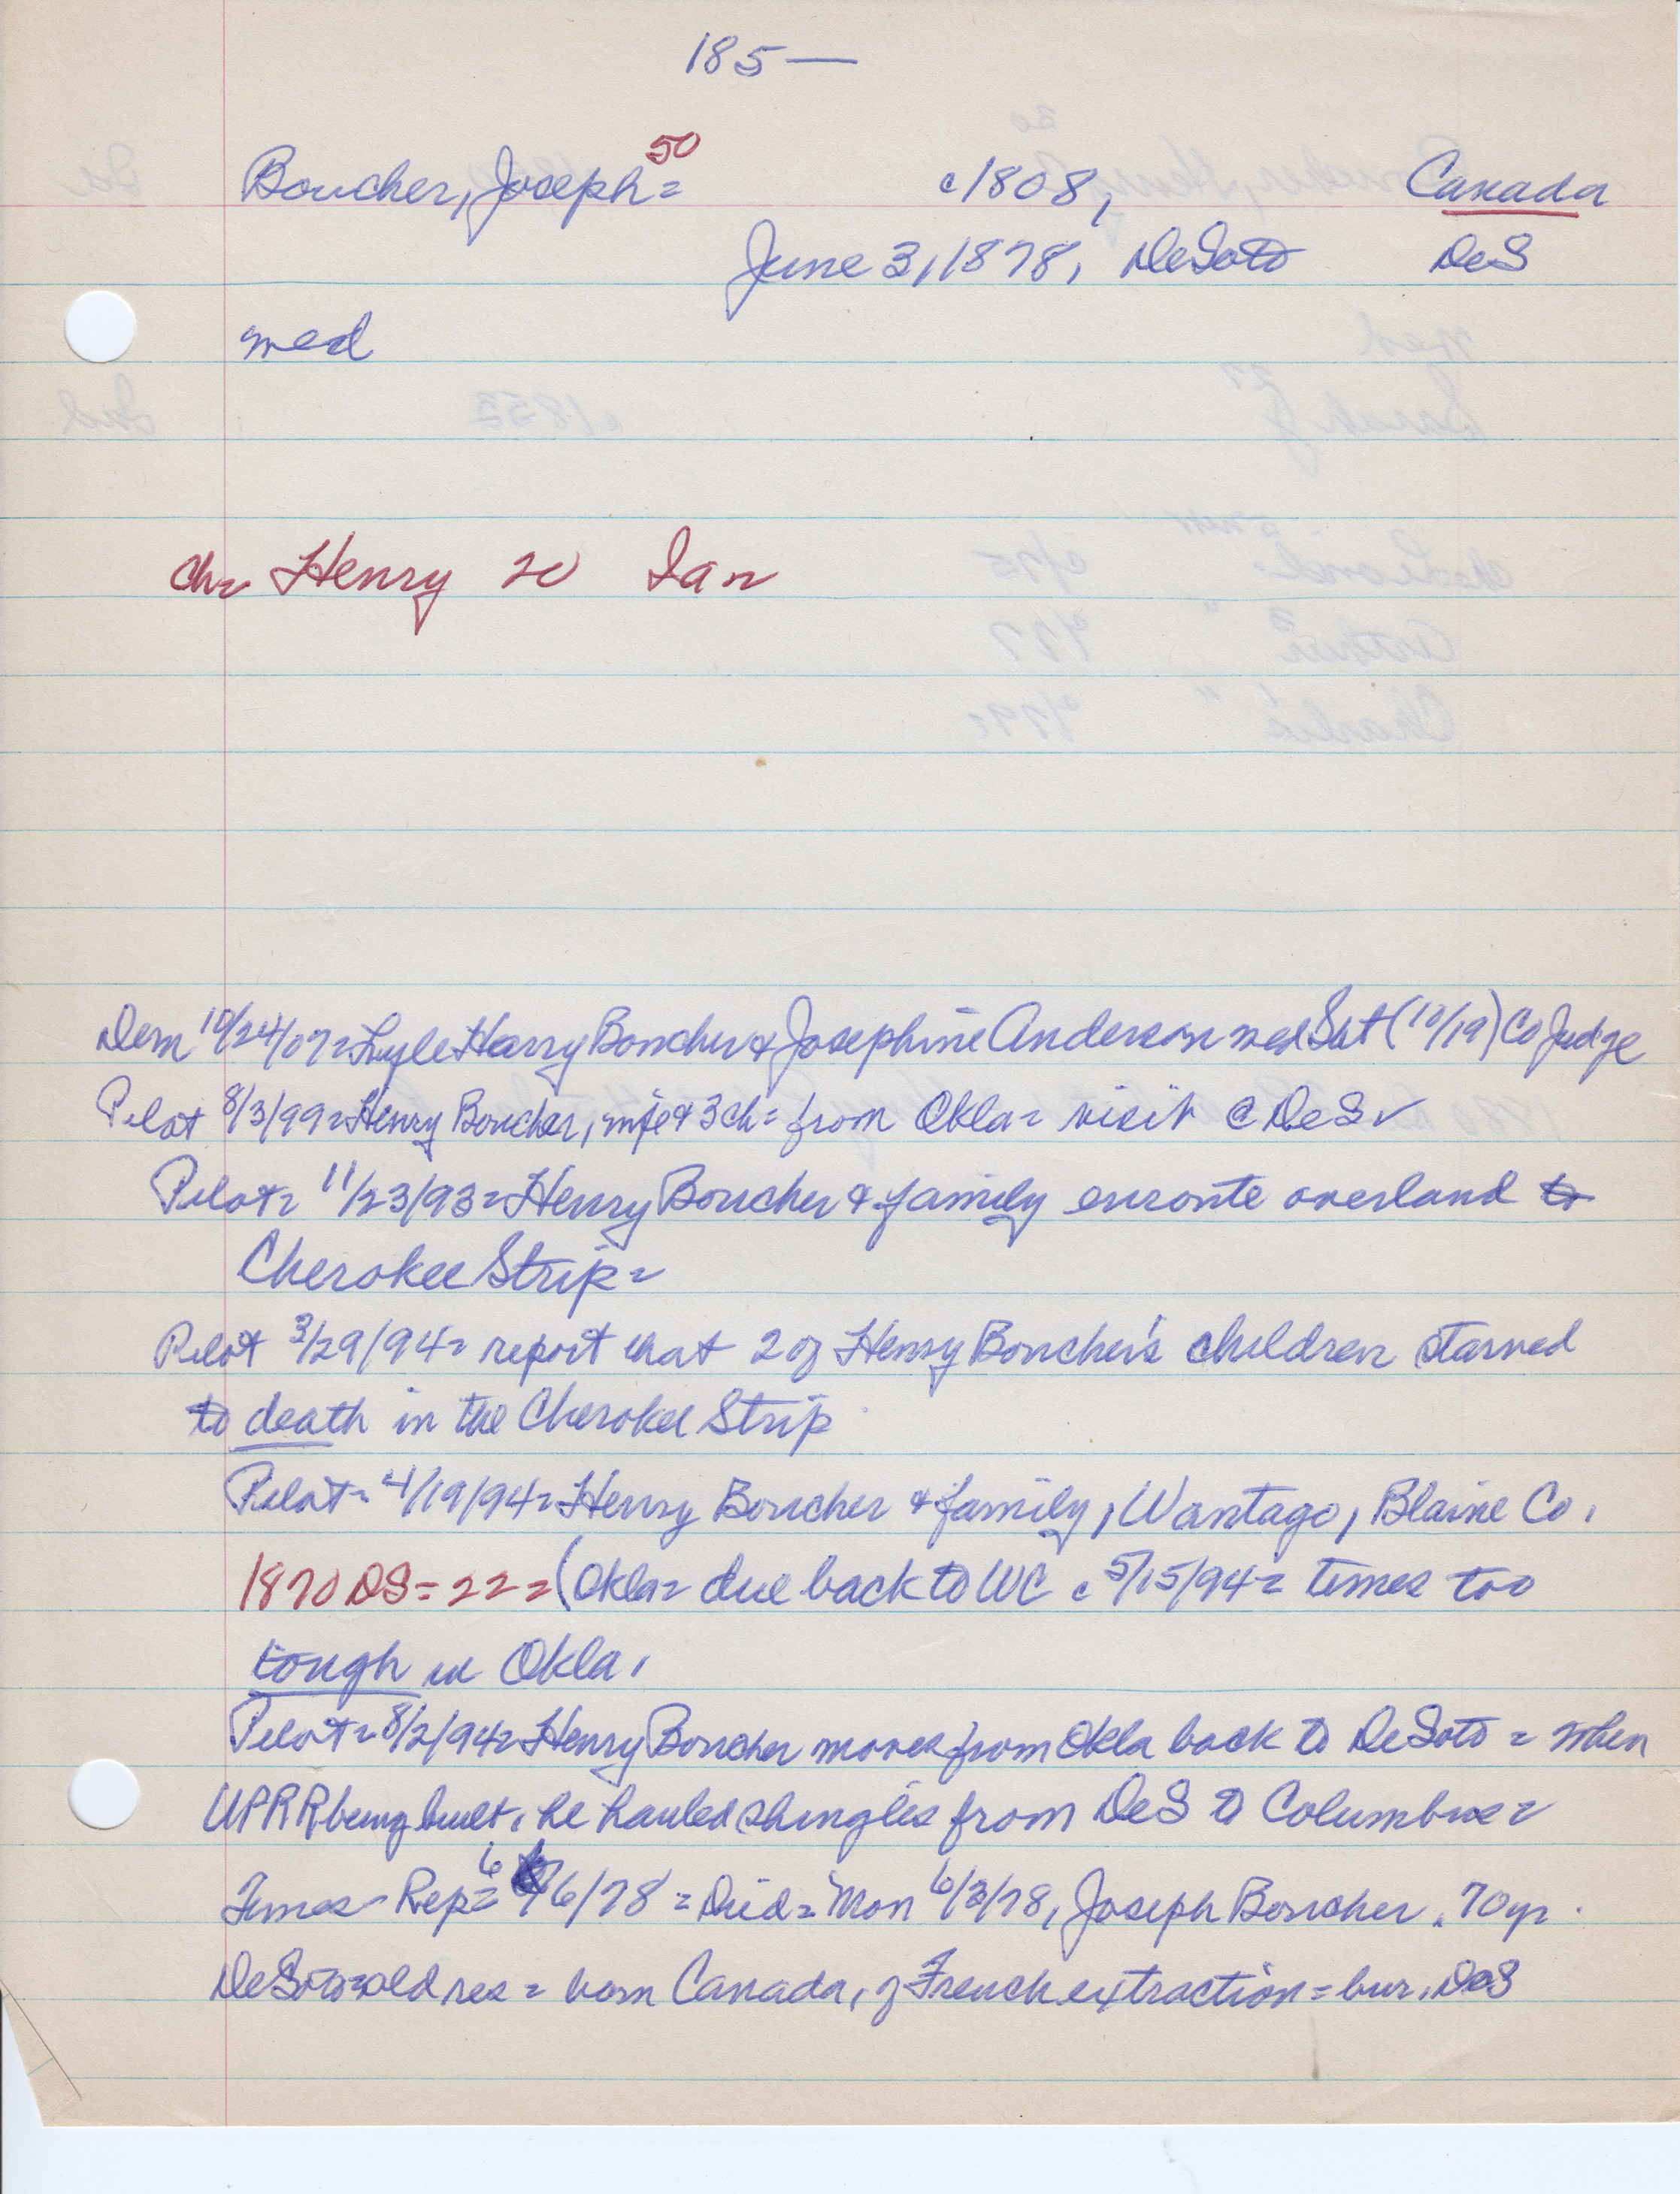 185—
Boucher, Joseph= 50 c1808, Canada
June 3, 1878, DeSoto DeS
med
ch= Henry 20 Ia=
Dem 10/24/07= Lyle Harry Boucher & Josephine Anderson med Sat (10/19) Co Judge
Pilot 8/3/99= Henry Boucher, wife & 3 ch= from Okla= visit @ DeS✓
Pilot= 11/23/93= Henry Boucher & family enroute overland to
Cherokee Strip=
Pilot 3/29/94= report that 2 of Henry Boucher's children starved
to death in the Cherokee Strip
Pilot= 4/19/94= Henry Boucher & family, Wantago, Blaine Co,
1870 DS=22= (Okla= due back to WC c 5/15/94= times too
tough in Okla,
Pilot= 8/2/94= Henry Boucher moves from Okla back to DeSoto = when
UPRR being built, he hauled shingles from DeS to Columbus=
Times Rep= 6/6/78 = Died= Mon 6/3/78, Joseph Boucher, 70 yr.
DeSoto= old res = born Canada, of French extraction = bur. DeS